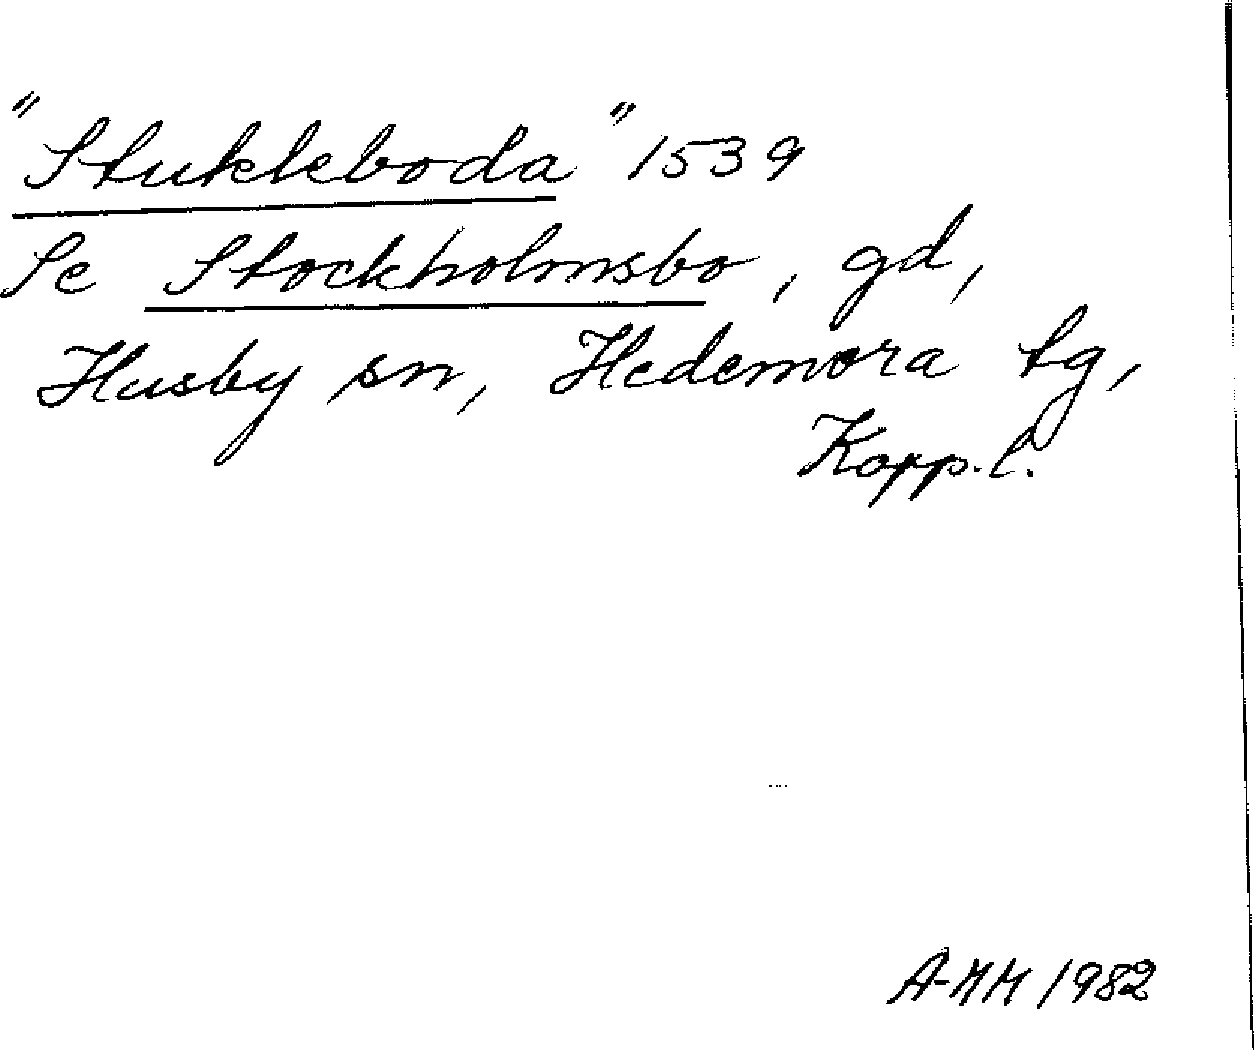 "Stukleboda" 1539
Se Stockholmsbo, gd,
Husby sn, Hedemora tg,
Kopp. l.
A-MM 1982